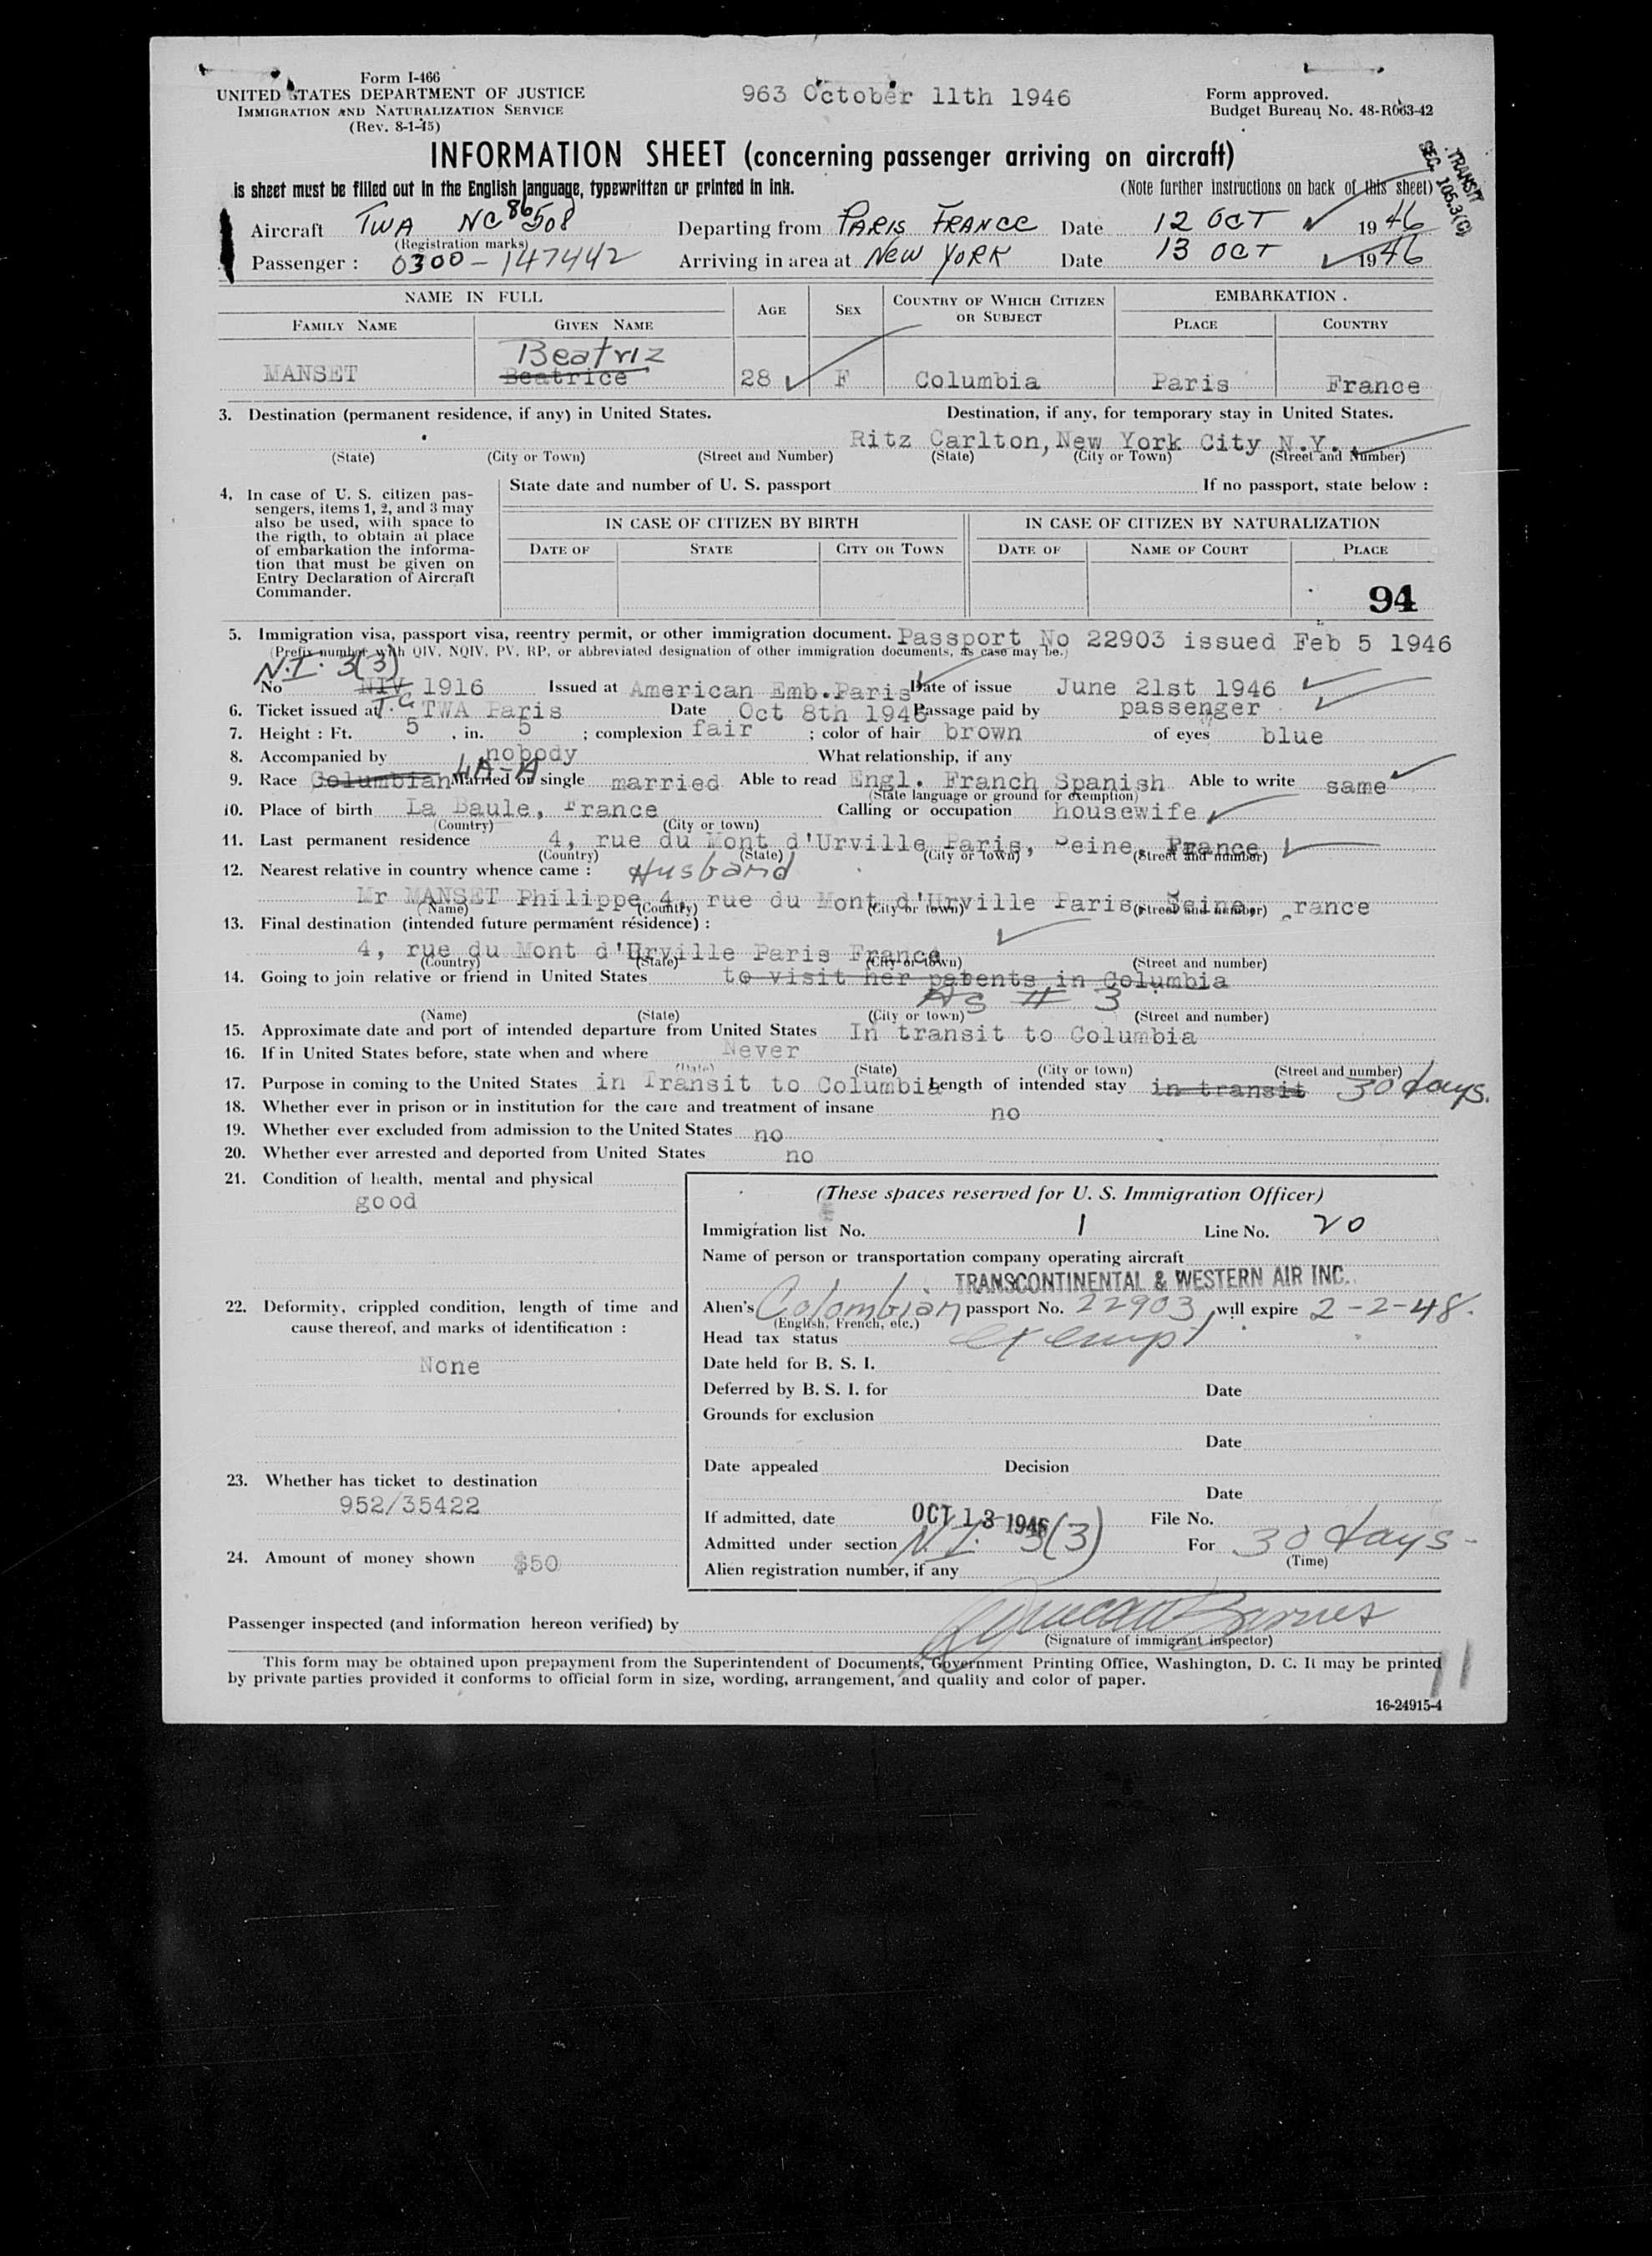 Form I-466
UNITED STATES DEPARTMENT OF JUSTICE
IMMIGRATION AND NATURALIZATION SERVICE
(Rev. 8-1-45)
963 October 11th 1946
Form approved.
Budget Bureau No. 48-R063-42
INFORMATION SHEET (concerning passenger arriving on aircraft)
is sheet must be filled out in the English language, typewritten or printed in ink.
(Note further instructions on back of this sheet)
TRANSIT
SEC. 105.3(C)
Aircraft TWA NC 86508 Departing from PARIS FRANCE Date 12 OCT 1946
(Registration marks)
Passenger : 0300-147442 Arriving in area at NEW YORK Date 13 OCT 1946
NAME IN FULL
FAMILY NAME GIVEN NAME AGE SEX COUNTRY OF WHICH CITIZEN OR SUBJECT EMBARKATION.
PLACE COUNTRY
Beatriz
MANSET Beatrice 28 F Columbia Paris France
3. Destination (permanent residence, if any) in United States. Destination, if any, for temporary stay in United States.
Ritz Carlton, New York City N.Y.
(State) (City or Town) (Street and Number) (State) (City or Town) (Street and Number)
4. In case of U. S. citizen pas-
sengers, items 1, 2, and 3 may
also be used, with space to
the rigth, to obtain at place
of embarkation the informa-
tion that must be given on
Entry Declaration of Aircraft
Commander.
State date and number of U. S. passport If no passport, state below :
IN CASE OF CITIZEN BY BIRTH IN CASE OF CITIZEN BY NATURALIZATION
DATE OF STATE CITY OR TOWN DATE OF NAME OF COURT PLACE
94
5. Immigration visa, passport visa, reentry permit, or other immigration document. Passport No 22903 issued Feb 5 1946
(Prefix number with QIV, NQIV, PV, RP, or abbreviated designation of other immigration documents, as case may be.)
N.I. 3(3)
No NIV 1916 Issued at American Emb.Paris Date of issue June 21st 1946
6. Ticket issued at TWA Paris Date Oct 8th 1946 Passage paid by passenger
7. Height : Ft. 5 , in. 5 ; complexion fair ; color of hair brown of eyes blue
8. Accompanied by nobody What relationship, if any
LA-A
9. Race Columbian Married or single married Able to read Engl. Franch Spanish Able to write same
(State language or ground for exemption)
10. Place of birth La Baule, France Calling or occupation housewife
(Country) (City or town)
11. Last permanent residence 4, rue du Mont d'Urville Paris, Seine, France
(Country) (State) (City or town) (Street and number)
12. Nearest relative in country whence came : Husband
Mr MANSET Philippe 4, rue du Mont d'Urville Paris, Seine, rance
(Name) (Country) (City or town) (Street and number)
13. Final destination (intended future permanent résidence) :
4, rue du Mont d'Urville Paris France
(Country) (State) (City or town) (Street and number)
14. Going to join relative or friend in United States to visit her parents in Columbia
As # 3
(Name) (State) (City or town) (Street and number)
15. Approximate date and port of intended departure from United States In transit to Columbia
16. If in United States before, state when and where Never
(Date) (State) (City or town) (Street and number)
17. Purpose in coming to the United States in Transit to Columbia Length of intended stay in transit 30 days.
18. Whether ever in prison or in institution for the care and treatment of insane no
19. Whether ever excluded from admission to the United States no
20. Whether ever arrested and deported from United States no
21. Condition of health, mental and physical
good
22. Deformity, crippled condition, length of time and
cause thereof, and marks of identification :
None
23. Whether has ticket to destination
952/35422
24. Amount of money shown $50
(These spaces reserved for U. S. Immigration Officer)
Immigration list No. 1 Line No. 20
Name of person or transportation company operating aircraft
TRANSCONTINENTAL & WESTERN AIR INC.
Alien's Colombian passport No. 22903, will expire 2-2-48.
(English, French, etc.)
Head tax status exempt
Date held for B. S. I.
Deferred by B. S. I. for Date
Grounds for exclusion
Date
Date appealed Decision
Date
If admitted, date OCT 13 1946 File No.
Admitted under section N.I. 3(3) For 30 days
(Time)
Alien registration number, if any
Passenger inspected (and information hereon verified) by
(Signature of immigrant inspector)
This form may be obtained upon prepayment from the Superintendent of Documents, Government Printing Office, Washington, D. C. It may be printed
by private parties provided it conforms to official form in size, wording, arrangement, and quality and color of paper.
11
16-24915-4